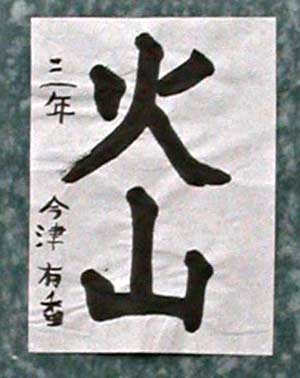 火山
三年 今津有香